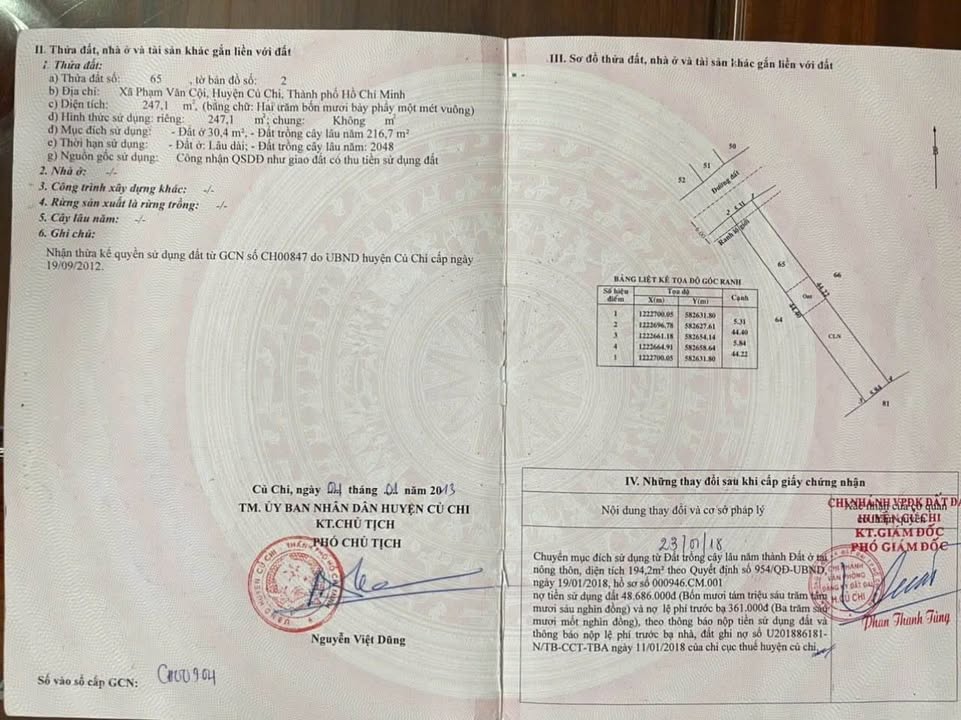 II. Thửa đất, nhà ở và tài sản khác gắn liền với đất
1. Thửa đất:
a) Thửa đất số: 65 , tờ bản đồ số: 2
b) Địa chỉ: Xã Phạm Văn Cội, Huyện Củ Chi, Thành phố Hồ Chí Minh
c) Diện tích: 247,1 m², (bằng chữ: Hai trăm bốn mươi bảy phẩy một mét vuông)
d) Hình thức sử dụng: riêng: 247,1 m²; chung: Không m²
đ) Mục đích sử dụng: - Đất ở 30,4 m², - Đất trồng cây lâu năm 216,7 m²
e) Thời hạn sử dụng: - Đất ở: Lâu dài; - Đất trồng cây lâu năm: 2048
g) Nguồn gốc sử dụng: Công nhận QSDĐ như giao đất có thu tiền sử dụng đất
2. Nhà ở: -/-
3. Công trình xây dựng khác: -/-
4. Rừng sản xuất là rừng trồng: -/-
5. Cây lâu năm: -/-
6. Ghi chú:
Nhận thừa kế quyền sử dụng đất từ GCN số CH00847 do UBND huyện Củ Chi cấp ngày
19/09/2012.
Củ Chi, ngày 04 tháng 01 năm 2013
TM. ỦY BAN NHÂN DÂN HUYỆN CỦ CHI
KT.CHỦ TỊCH
PHÓ CHỦ TỊCH
Nguyễn Việt Dũng
Số vào sổ cấp GCN: CH00904
III. Sơ đồ thửa đất, nhà ở và tài sản khác gắn liền với đất
B
50
51
52
Đường đất
1
2
5.31
6.00
Ranh lộ giới
65
66
Ont
44.22
44.40
64
CLN
5.84
3
4
81
BẢNG LIỆT KÊ TỌA ĐỘ GÓC RANH
Số hiệu điểm Tọa độ Cạnh
X(m) Y(m)
1 1222700.05 582631.80
5.31
2 1222696.78 582627.61
44.40
3 1222661.18 582654.14
5.84
4 1222664.91 582658.64
44.22
1 1222700.05 582631.80
IV. Những thay đổi sau khi cấp giấy chứng nhận
Nội dung thay đổi và cơ sở pháp lý
Xác nhận của cơ quan
có thẩm quyền
CHI NHÁNH VPĐK ĐẤT ĐA
HUYỆN CỦ CHI
KT.GIÁM ĐỐC
PHÓ GIÁM ĐỐC
23/01/18
Chuyển mục đích sử dụng từ Đất trồng cây lâu năm thành Đất ở tại
nông thôn, diện tích 194,2m² theo Quyết định số 954/QĐ-UBND,
ngày 19/01/2018, hồ sơ số 000946.CM.001
nợ tiền sử dụng đất 48.686.000đ (Bốn mươi tám triệu sáu trăm tám
mươi sáu nghìn đồng) và nợ lệ phí trước bạ 361.000đ (Ba trăm sáu
mươi mốt nghìn đồng), theo thông báo nộp tiền sử dụng đất và
thông báo nộp lệ phí trước bạ nhà, đất ghi nợ số U201886181-
N/TB-CCT-TBA ngày 11/01/2018 của chi cục thuế huyện củ chi
CHI NHÁNH
VĂN PHÒNG
ĐĂNG KÝ ĐẤT ĐAI
H.CỦ CHI
Phan Thanh Tùng